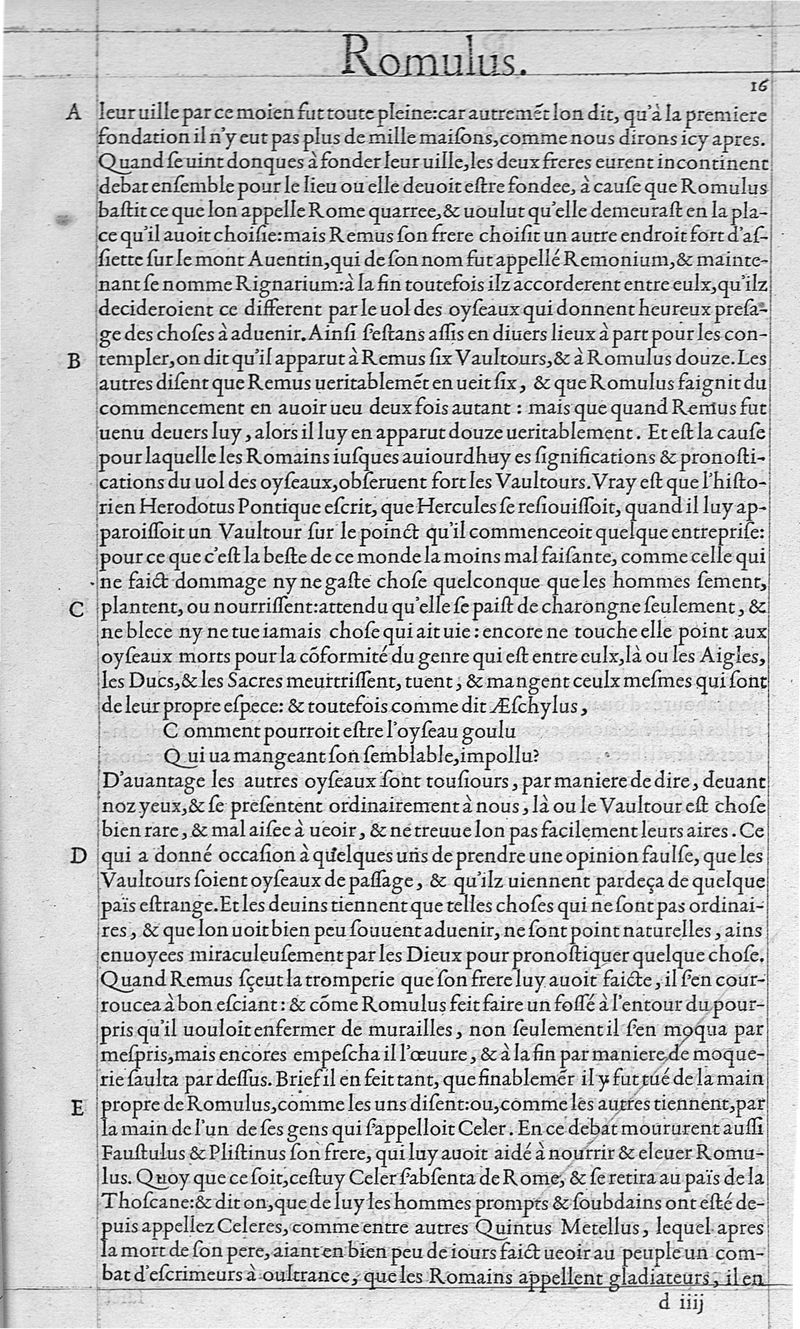 Romulus.
16
A leur uille par ce moien fut toute pleine:car autremẽt lon dit, qu'à la premiere
fondation il n'y eut pas plus de mille maiſons,comme nous dirons icy apres.
Quand ſe uint donques à fonder leur uille,les deux freres eurent incontinent
debat enſemble pour le lieu ou elle deuoit eſtre fondee, à cauſe que Romulus
baſtit ce que lon appelle Rome quarree,& uoulut qu'elle demeuraſt en la pla-
ce qu'il auoit choiſie:mais Remus ſon frere choiſit un autre endroit fort d'aſ-
ſiette ſur le mont Auentin,qui de ſon nom fut appellé Remonium,& mainte-
nant ſe nomme Rignarium:à la fin toutefois ilz accorderent entre eulx,qu'ilz
decideroient ce different par le uol des oyſeaux qui donnent heureux preſa-
ge des choſes à aduenir. Ainſi ſ'eſtans aſſis en diuers lieux à part pour les con-
B templer,on dit qu'il apparut à Remus ſix Vaultours,& à Romulus douze. Les
autres diſent que Remus ueritablemẽt en ueit ſix, & que Romulus faignit du
commencement en auoir ueu deux fois autant : mais que quand Remus fut
uenu deuers luy, alors il luy en apparut douze ueritablement. Et eſt la cauſe
pour laquelle les Romains iuſques auiourdhuy es ſignifications & pronoſti-
cations du uol des oyſeaux,obſeruent fort les Vaultours. Vray eſt que l'hiſto-
rien Herodotus Pontique eſcrit, que Hercules ſe reſiouiſſoit, quand il luy ap-
paroiſſoit un Vaultour ſur le poinct qu'il commenceoit quelque entrepriſe:
pour ce que c'eſt la beſte de ce monde la moins mal faiſante, comme celle qui
ne faict dommage ny ne gaſte choſe quelconque que les hommes ſement,
C plantent, ou nourriſſent:attendu qu'elle ſe paiſt de charongne ſeulement, &
ne blece ny ne tue iamais choſe qui ait uie : encore ne touche elle point aux
oyſeaux morts pour la cõformité du genre qui eſt entre eulx,là ou les Aigles,
les Ducs,& les Sacres meurtriſſent, tuent, & mangent ceulx meſmes qui ſont
de leur propre eſpece: & toutefois comme dit Æſchylus,
Comment pourroit eſtre l'oyſeau goulu
Qui ua mangeant ſon ſemblable,impollu?
D'auantage les autres oyſeaux ſont touſiours, par maniere de dire, deuant
noz yeux,& ſe preſentent ordinairement à nous, là ou le Vaultour eſt choſe
bien rare, & mal aiſee à ueoir, & ne treuue lon pas facilement leurs aires. Ce
D qui a donné occaſion à quelques uns de prendre une opinion faulſe, que les
Vaultours ſoient oyſeaux de paſſage, & qu'ilz uiennent pardeça de quelque
païs eſtrange. Et les deuins tiennent que telles choſes qui ne ſont pas ordinai-
res, & que lon uoit bien peu ſouuent aduenir, ne ſont point naturelles, ains
enuoyees miraculeuſement par les Dieux pour pronoſtiquer quelque choſe.
Quand Remus ſçeut la tromperie que ſon frere luy auoit faicte, il ſ'en cour-
roucea à bon eſciant : & cõme Romulus feit faire un foſſé à l'entour du pour-
pris qu'il uouloit enfermer de murailles, non ſeulement il ſ'en moqua par
meſpris,mais encores empeſcha il l'œuure, & à la fin par maniere de moque-
rie ſaulta par deſſus. Brief il en feit tant, que finablemẽt il y fut tué de la main
E propre de Romulus,comme les uns diſent:ou,comme les autres tiennent,par
la main de l'un de ſes gens qui ſ'appelloit Celer. En ce debat moururent auſſi
Fauſtulus & Pliſtinus ſon frere, qui luy auoit aidé à nourrir & eleuer Romu-
lus. Quoy que ce ſoit,ceſtuy Celer ſ'abſenta de Rome, & ſe retira au païs de la
Thoſcane:& dit on,que de luy les hommes prompts & ſoubdains ont eſté de-
puis appellez Celeres, comme entre autres Quintus Metellus, lequel apres
la mort de ſon pere, aiant en bien peu de iours faict ueoir au peuple un com-
bat d'eſcrimeurs à oultrance, que les Romains appellent gladiateurs, il en
d iiij